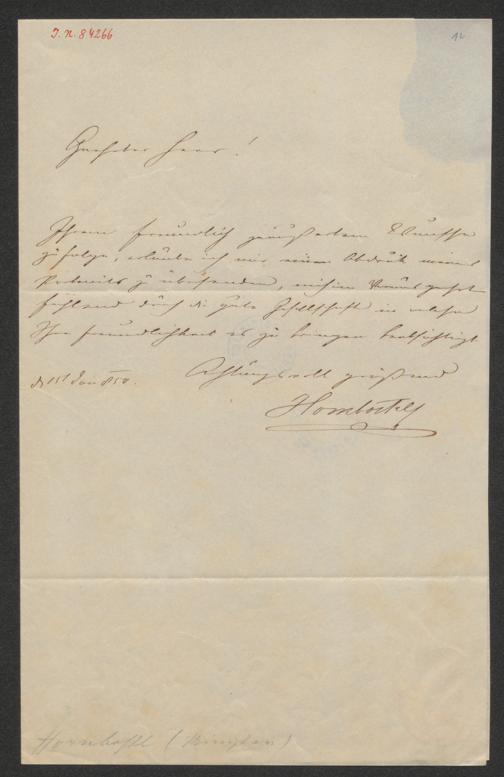 I. N. 84266
12
Geehrter Herr!
Ihrem freundlich geäußerten Wunsche
zufolge, erlaube ich mir einen Abdruk meines
Portraits zu übersenden,
durch die gute Gesellschaft in welche
Ihre Freundlichkeit es zu bringen beabsichtigt
Achtungsvoll grüßend
d 15t 850.
Hornbostel
Hornbostel (Minister)